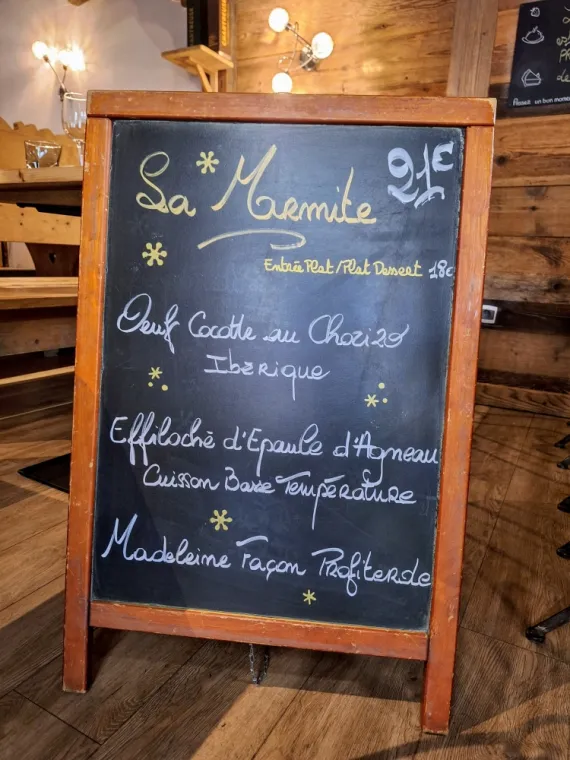 La Marmite
21€
Entrée Plat/Plat Dessert 18€
Oeuf Cocotte au Chorizo
Ibérique
Effiloché d'Epaule d'Agneau
Cuisson Basse Température
Madeleine Façon Profiterole
un bon moment